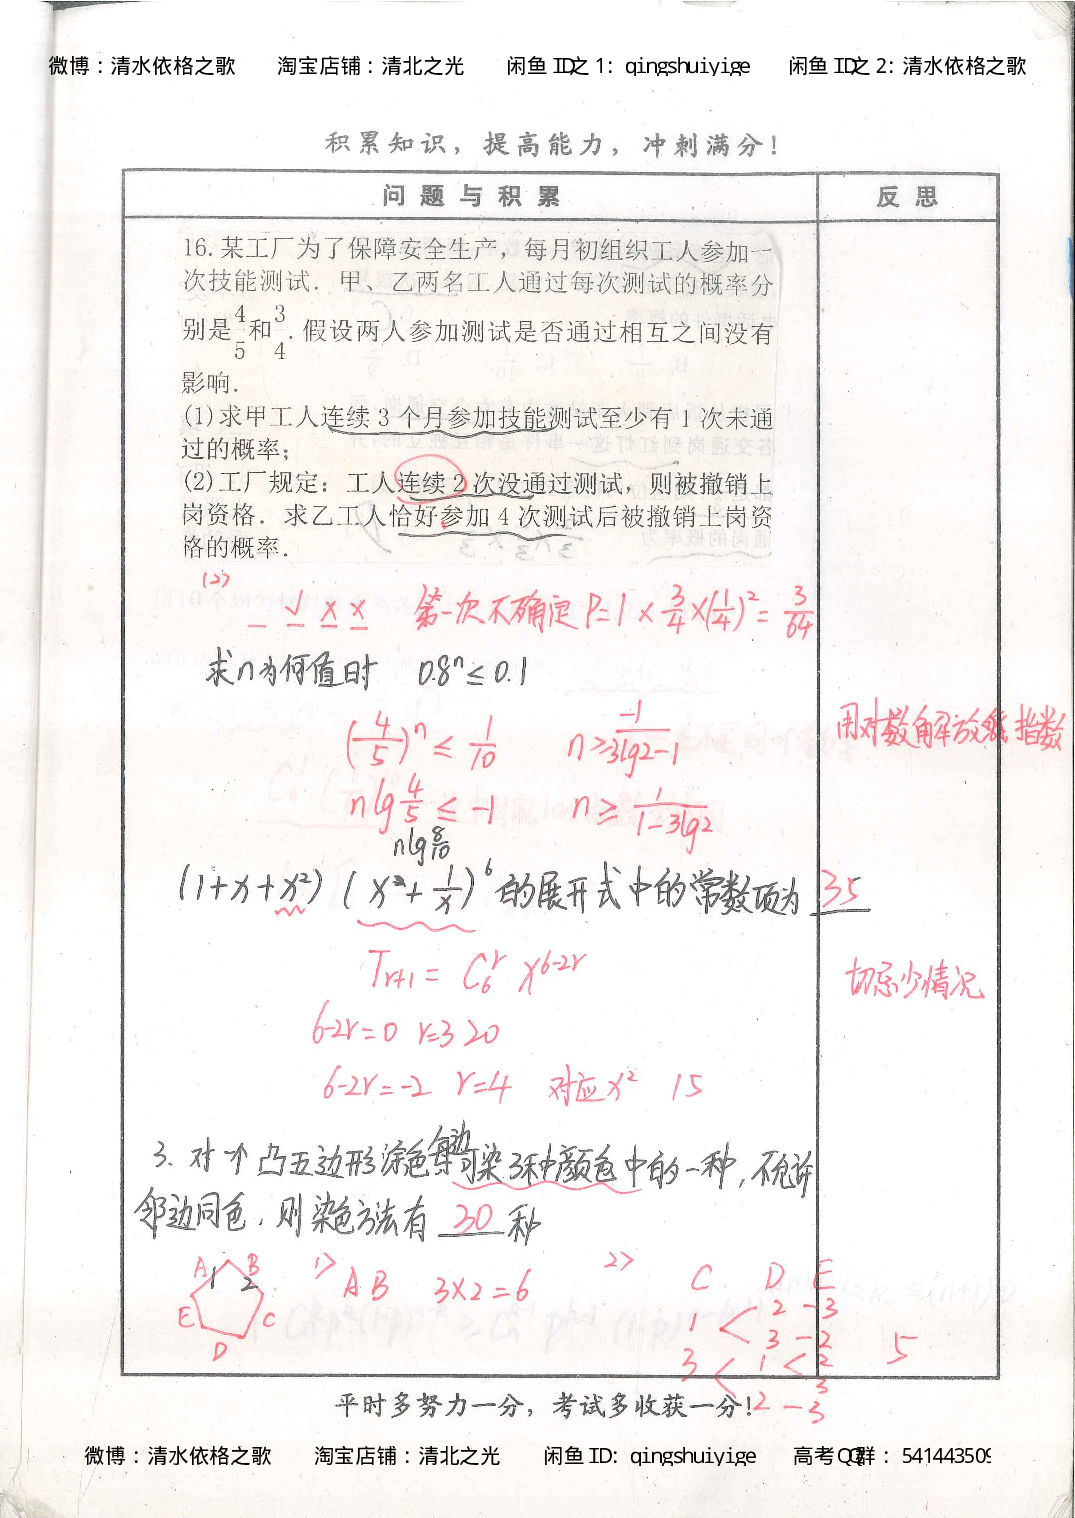 微博：清水依格之歌 淘宝店铺：清北之光 闲鱼 ID之 1: qingshuiyige 闲鱼 ID之 2: 清水依格之歌
积累知识，提高能力，冲刺满分！
问题与积累 反思
16. 某工厂为了保障安全生产，每月初组织工人参加一
次技能测试. 甲、乙两名工人通过每次测试的概率分
别是4/5和3/4. 假设两人参加测试是否通过相互之间没有
影响.
(1)求甲工人连续 3 个月参加技能测试至少有 1 次未通
过的概率；
(2)工厂规定：工人连续 2 次没通过测试，则被撤销上
岗资格. 求乙工人恰好参加 4 次测试后被撤销上岗资
格的概率.
(2)
_ √ × × 第一次不确定 P=1×3/4×(1/4)²=3/64
求n为何值时 0.8ⁿ≤0.1
(4/5)ⁿ≤1/10 n≥-1/3lg2-1
用对数解放 指数
nlg4/5≤-1 n≥1/1-3lg2
nlg8/10
(1+x+x²)(x+1/x)⁶的展开式中的常数项为 35
Tr+1=C₆ʳ x⁶⁻²ʳ
切忌少情况
6-2r=0 r=3 20
6-2r=-2 r=4 对应x² 15
3. 对个凸五边形涂色每边可染3种颜色中的一种，不允许
邻边同色，则染色方法有 30 种
A 1 B 2 E C D
1> AB 3×2=6
2> C D E
1 < 2 - 3
3 - 2
3 < 1 < 2
3
2 - 3
5
平时多努力一分，考试多收获一分！
微博：清水依格之歌 淘宝店铺：清北之光 闲鱼 ID: qingshuiyige 高考QQ群：541443509